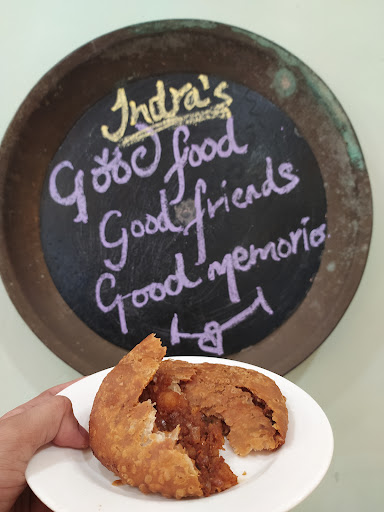 Indra's
Good food
Good friends
Good memories